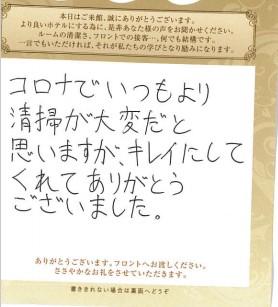 本日はご来館、誠にありがとうございます。
より良いホテルにする為に、是非あなた様の声をお聞かせください。
ルームの清潔さ、フロントでの接客…、何でも結構です。
一言でもいただければ、それが私たちの学びとなり励みになります。
コロナでいつもより
清掃が大変だと
思いますが、キレイにして
くれてありがとう
ございました。
ありがとうございます。フロントへお渡しください。
ささやかなお礼をさせていただきます。
書ききれない場合は裏面へどうぞ